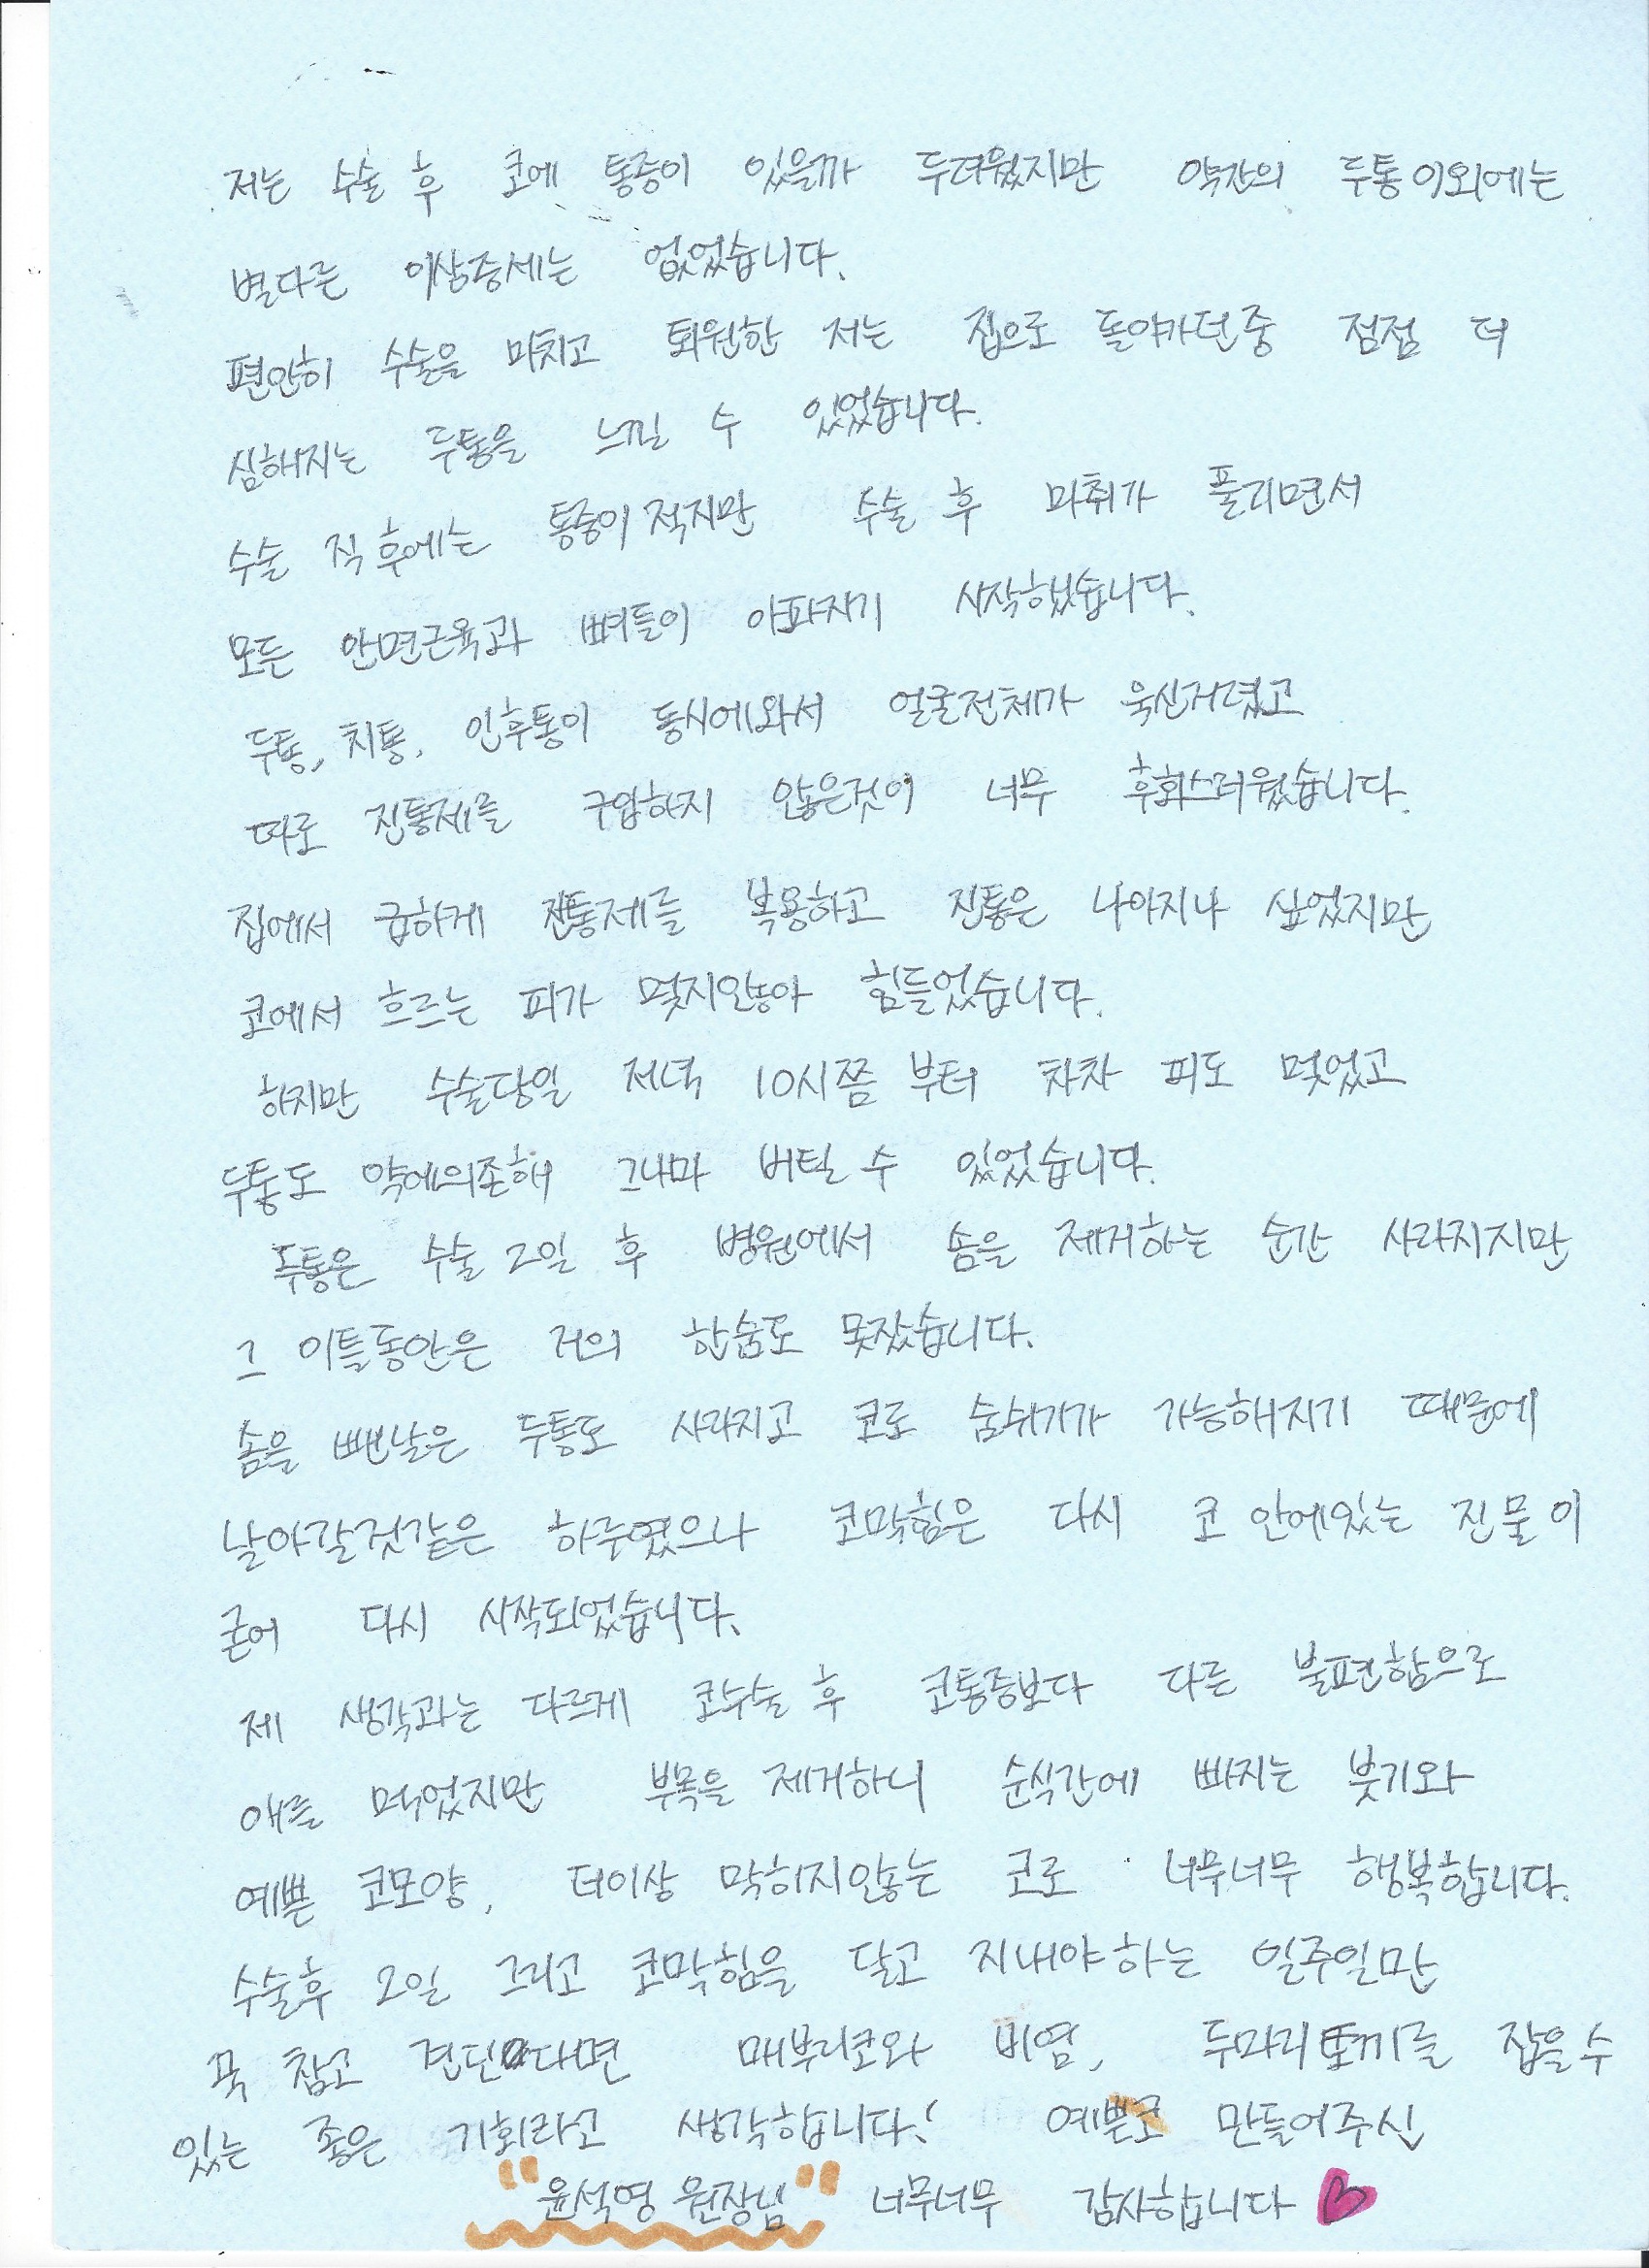 저는 수술 후 코에 통증이 있을까 두려웠지만 약간의 두통이외에는
별다른 이상증세는 없었습니다.
편안히 수술을 마치고 퇴원한 저는 집으로 돌아가던중 점점 더
심해지는 두통을 느낄 수 있었습니다.
수술 직후에는 통증이 적지만 수술 후 마취가 풀리면서
모든 안면근육과 뼈들이 아파지기 시작했습니다.
두통, 치통, 인후통이 동시에와서 얼굴전체가 욱신거렸고
따로 진통제를 구입하지 않은것이 너무 후회스러웠습니다.
집에서 급하게 진통제를 복용하고 진통은 나아지나 싶었지만
코에서 흐르는 피가 멎지않아 힘들었습니다.
하지만 수술당일 저녁 10시쯤 부터 차차 피도 멎었고
두통도 약에의존해 그나마 버틸 수 있었습니다.
두통은 수술 2일 후 병원에서 솜을 제거하는 순간 사라지지만
그 이틀동안은 거의 한숨도 못잤습니다.
솜을 뺀날은 두통도 사라지고 코로 숨쉬기가 가능해지기 때문에
날아갈것같은 하루였으나 코막힘은 다시 코 안에있는 진물이
굳어 다시 시작되었습니다.
제 생각과는 다르게 코수술 후 코통증보다 다른 불편함으로
애를 먹었지만 부목을 제거하니 순식간에 빠지는 붓기와
예쁜 코모양, 더이상 막히지않는 코로 너무너무 행복합니다.
수술후 2일 그리고 코막힘을 달고 지내야하는 일주일만
꾹 참고 견딘다면 매부리코와 비염, 두마리토끼를 잡을수
있는 좋은 기회라고 생각합니다! 예쁜코 만들어주신
"윤석영 원장님" 너무너무 감사합니다 ♡